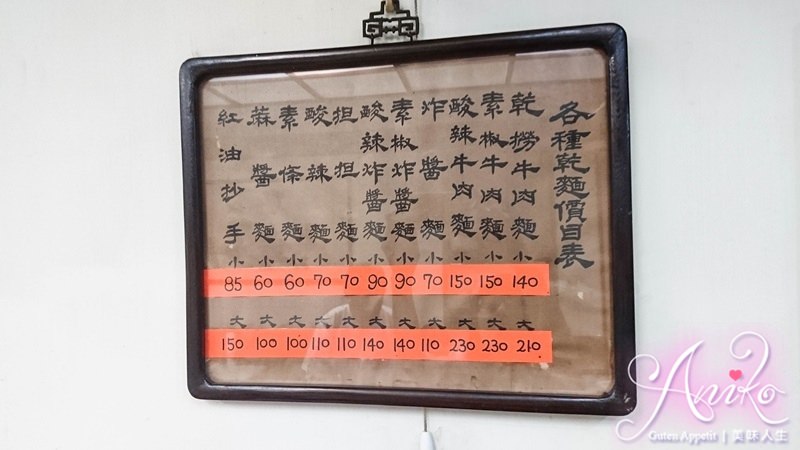 各種乾麵價目表
乾撈牛肉麵 小 140 大 210
素椒牛肉麵 小 150 大 230
酸辣牛肉麵 小 150 大 230
炸醬麵 小 70 大 110
素椒炸醬麵 小 90 大 140
酸辣炸醬麵 小 90 大 140
担担麵 小 70 大 110
酸辣麵 小 70 大 110
素條麵 小 60 大 100
蔴醬麵 小 60 大 100
紅油抄手 小 85 大 150
Aniko
Guten Appetit | 美味人生